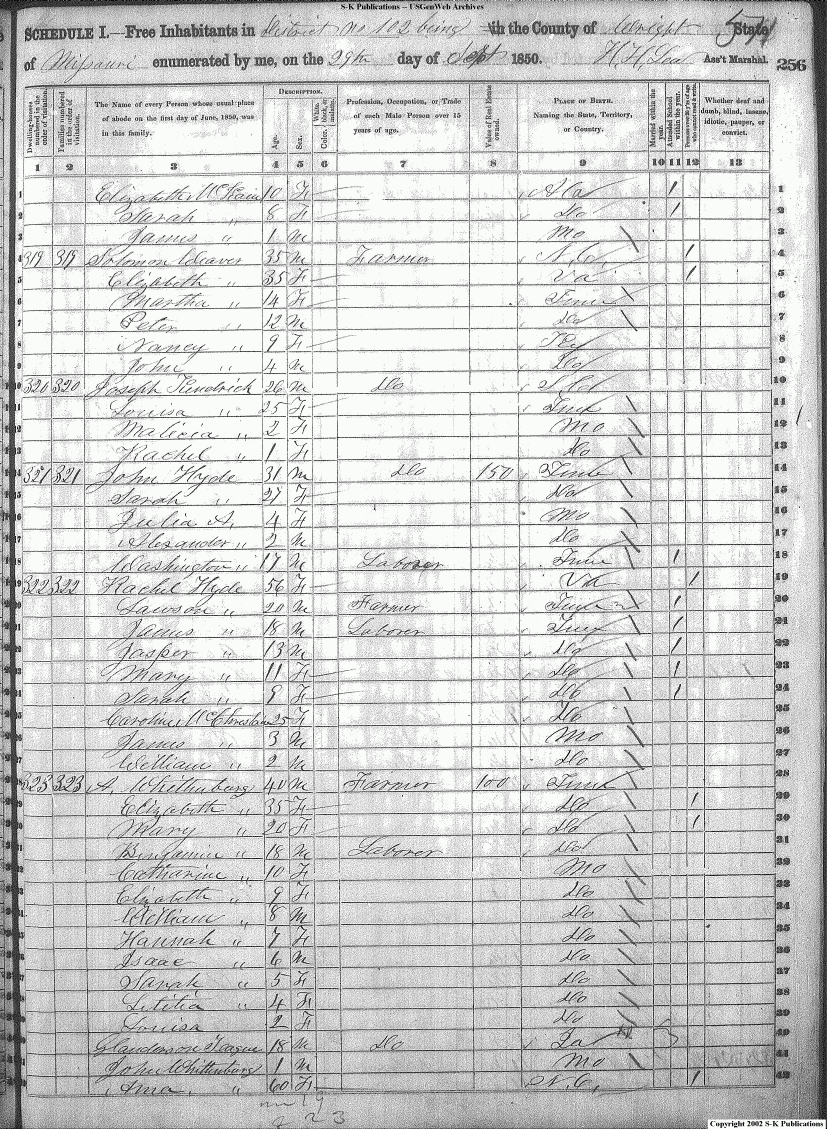 S-K Publications -- USGenWeb Archives
SCHEDULE I.—Free Inhabitants in District No 102 being in the County of Wright State
of Missouri enumerated by me, on the 29th day of Sept 1850. Ass't Marshal. 256
Dwelling-houses numbered in the order of visitation. Families numbered in the order of visitation. The Name of every Person whose usual place of abode on the first day of June, 1850, was in this family. DESCRIPTION. Age. Sex. White, black, or mulatto. Color. Profession, Occupation, or Trade of each Male Person over 15 years of age. Value of Real Estate owned. PLACE OF BIRTH. Naming the State, Territory, or Country. Married within the year. Attended School within the year. Persons over 20 y'rs of age who cannot read & write. Whether deaf and dumb, blind, insane, idiotic, pauper, or convict.
1 2 3 4 5 6 7 8 9 10 11 12 13
1 Elizabeth 10 F Ala / 1
2 Sarah " 8 F Do / 2
3 James " 1 M Mo 3
4 319 319 Solomon Weaver 35 M Farmer N.C. / 4
5 Elizabeth " 35 F Va / 5
6 Martha " 14 F Tenn 6
7 Peter " 12 M Do 7
8 Nancy " 9 F Ky 8
9 John " 4 M Do 9
10 320 320 Joseph Kendrick 26 M Do 10
11 Louisa " 25 F Tenn 11
12 Malicia " 2 F Mo 12
13 Rachel " 1 F Do 13
14 321 321 John Hyde 31 M Do 150 Tenn 14
15 Sarah " 27 F 15
16 Julia A. 4 F Mo 16
17 Alexander " 2 M Do 17
18 Washington " 17 M Laborer Tenn / 18
19 322 322 Rachel Hyde 56 F Va / 19
20 Lawson " 20 M Farmer Tenn / 20
21 James " 18 M Laborer Tenn / 21
22 Jasper " 13 M Do / 22
23 Mary " 11 F Do / 23
24 Sarah " 9 F Do / 24
25 Caroline McChristian 25 F Do 25
26 James " 3 M Mo 26
27 William " 2 M Do 27
28 323 323 A. Whittenburg 40 M Farmer 100 Tenn 28
29 Elizabeth " 35 F Do / 29
30 Mary " 20 F Do / 30
31 Benjamin " 18 M Laborer Do 31
32 Catharine " 10 F Mo 32
33 Elizabeth " 9 F Do 33
34 William " 8 M Do 34
35 Hannah " 7 F Do 35
36 Isaac " 6 M Do 36
37 Sarah " 5 F Do 37
38 Letitia " 4 F Do 38
39 Louisa 2 F Do 39
40 Teague 18 M Do 40
41 John Whittenburg 1 M Mo 41
42 " 60 F N.C. / 42
Copyright 2002 S-K Publications